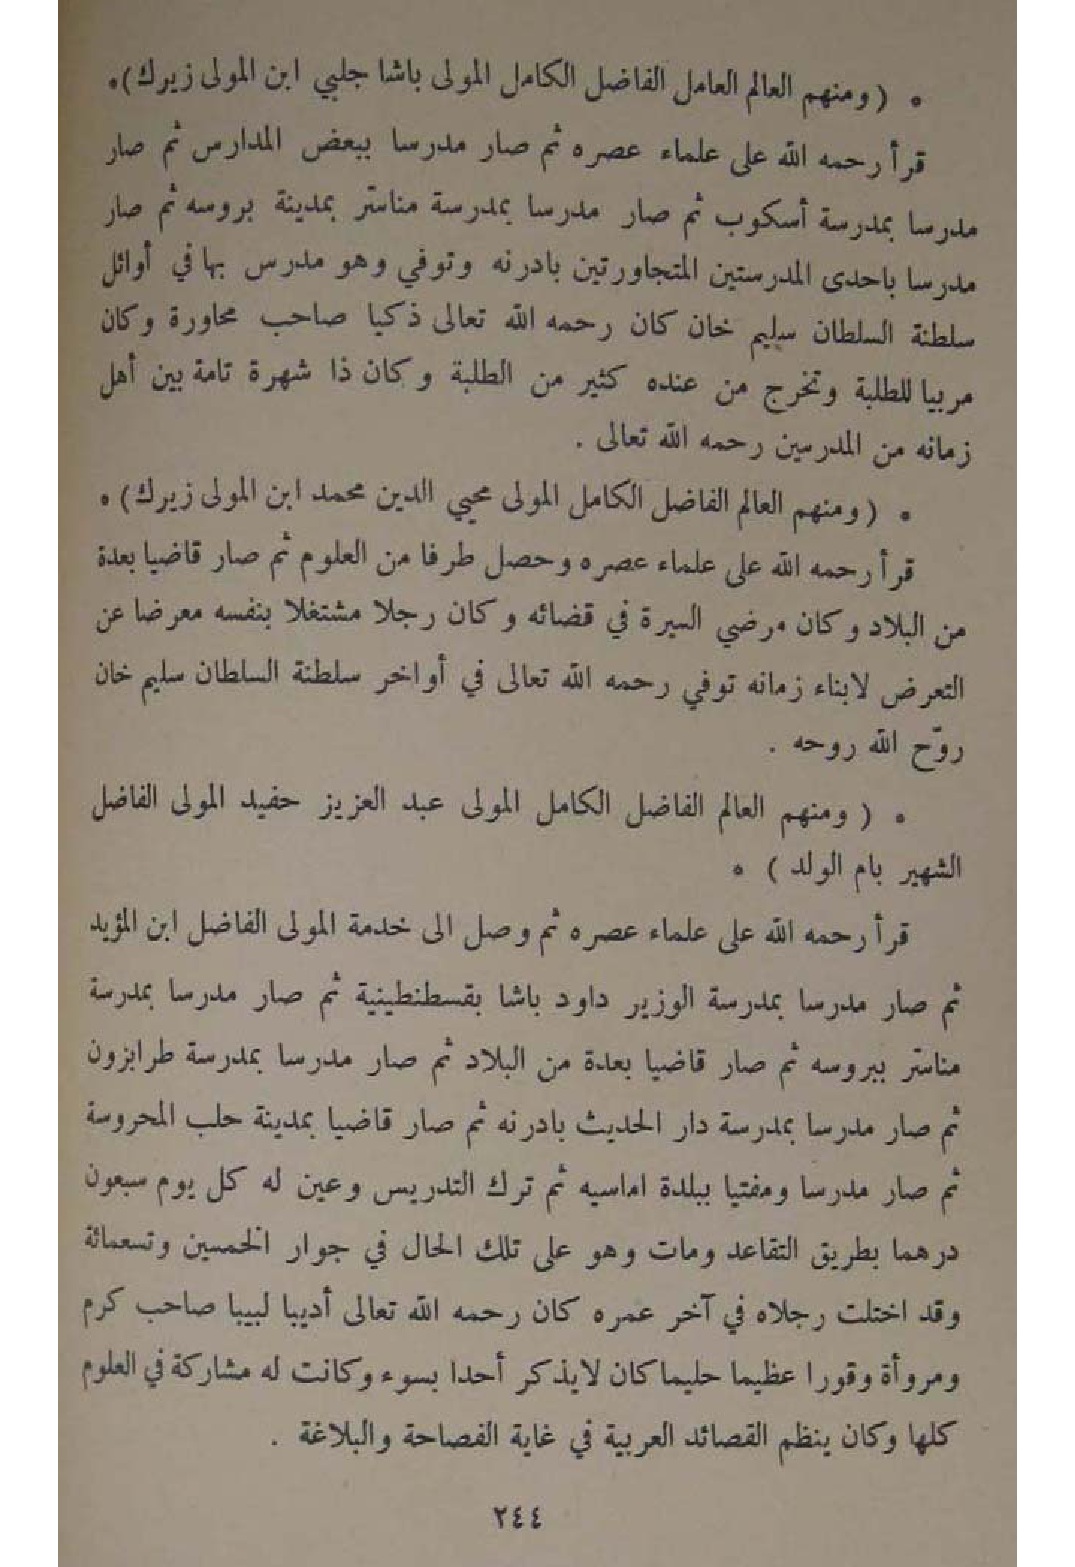 • ( ومنهم العالم العامل الفاضل الكامل المولى باشا جلبي ابن المولى زيرك ) •
قرأ رحمه الله على علماء عصره ثم صار مدرسا ببعض المدارس ثم صار
مدرسا بمدرسة أسكوب ثم صار مدرسا بمدرسة مناستر بمدينة بروسه ثم صار
مدرسا باحدى المدرستين المتجاورتين بادرنه وتوفي وهو مدرس بها في أوائل
سلطنة السلطان سليم خان كان رحمه الله تعالى ذكيا صاحب محاورة وكان
مربيا للطلبة وتخرج من عنده كثير من الطلبة وكان ذا شهرة تامة بين أهل
زمانه من المدرسين رحمه الله تعالى .
• ( ومنهم العالم الفاضل الكامل المولى محيي الدين محمد ابن المولى زيرك ) •
قرأ رحمه الله على علماء عصره وحصل طرفا من العلوم ثم صار قاضيا بعدة
من البلاد وكان مرضي السيرة في قضائه وكان رجلا مشتغلا بنفسه معرضا عن
التعرض لابناء زمانه توفي رحمه الله تعالى في أواخر سلطنة السلطان سليم خان
روّح الله روحه .
• ( ومنهم العالم الفاضل الكامل المولى عبد العزيز حفيد المولى الفاضل
الشهير بام الولد ) •
قرأ رحمه الله على علماء عصره ثم وصل الى خدمة المولى الفاضل ابن المؤيد
ثم صار مدرسا بمدرسة الوزير داود باشا بقسطنطينية ثم صار مدرسا بمدرسة
مناستر ببروسه ثم صار قاضيا بعدة من البلاد ثم صار مدرسا بمدرسة طرابزون
ثم صار مدرسا بمدرسة دار الحديث بادرنه ثم صار قاضيا بمدينة حلب المحروسة
ثم صار مدرسا ومفتيا ببلدة اماسيه ثم ترك التدريس وعين له كل يوم سبعون
درهما بطريق التقاعد ومات وهو على تلك الحال في جوار الخمسين وتسعمائة
وقد اختلت رجلاه في آخر عمره كان رحمه الله تعالى أديبا لبيبا صاحب كرم
ومروأة وقورا عظيما حليما كان لايذكر أحدا بسوء وكانت له مشاركة في العلوم
كلها وكان ينظم القصائد العربية في غاية الفصاحة والبلاغة .
٢٤٤